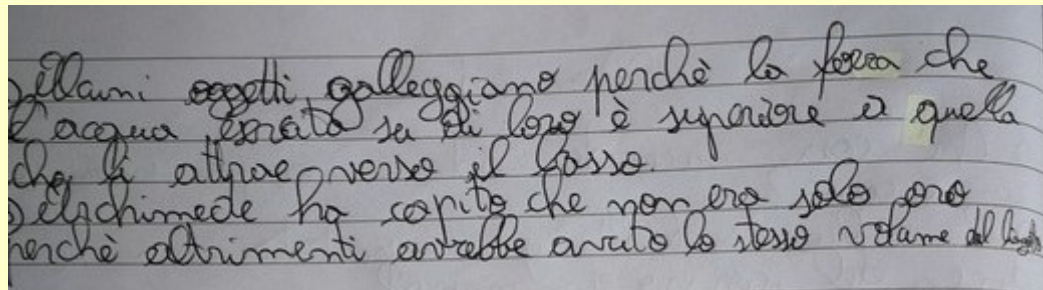 ) Alcuni oggetti galleggiano perchè la forza che
l'acqua esercita su di loro è superiore a quella
che li attrae verso il basso.
) Archimede ha capito che non era solo oro
perchè altrimenti avrebbe avuto lo stesso volume del